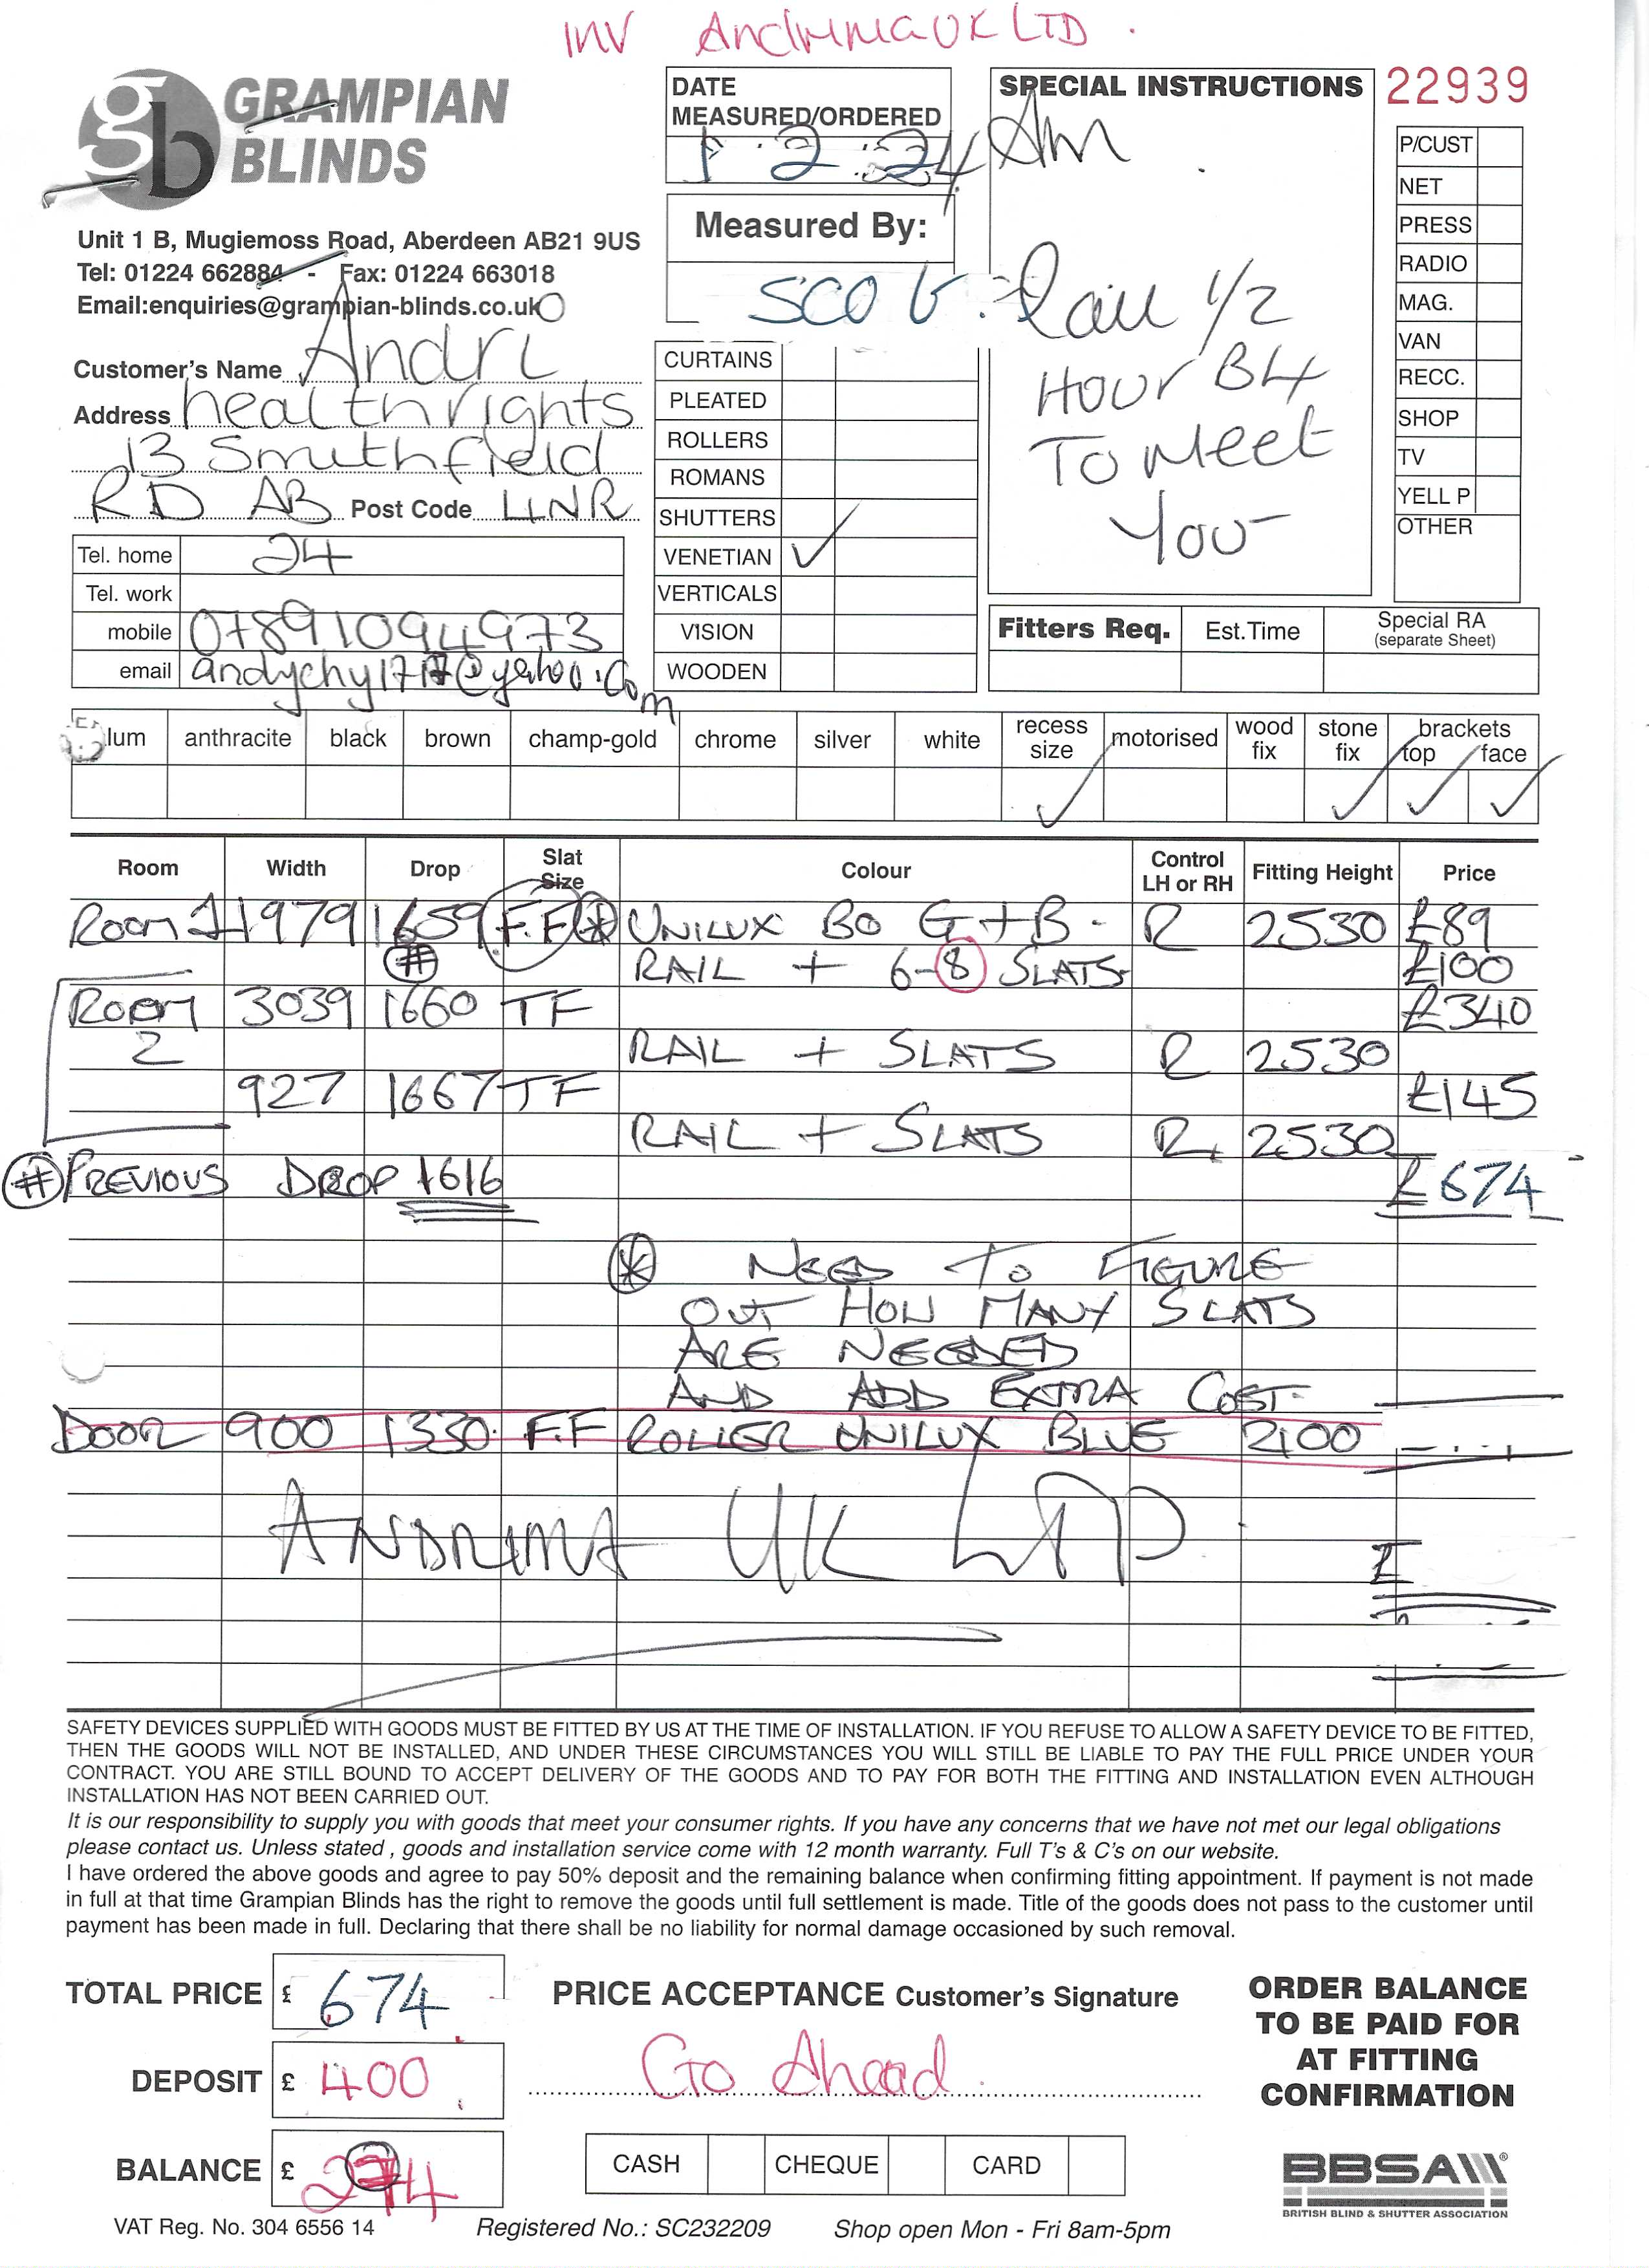 INV AndrimaUK LTD.
GRAMPIAN
BLINDS
Unit 1 B, Mugiemoss Road, Aberdeen AB21 9US
Tel: 01224 662884 - Fax: 01224 663018
Email:enquiries@grampian-blinds.co.uk
DATE
MEASURED/ORDERED
1.2.24
Measured By:
SPECIAL INSTRUCTIONS
Am
22939
1/2
HOUR B4
To Meet
You
P/CUST
NET
PRESS
RADIO
MAG.
VAN
RECC.
SHOP
TV
YELL P
OTHER
Customer's Name
Address healthrights
13 Smithfield
RD AB Post Code
Tel. home 24
Tel. work
mobile 07891094973
email
CURTAINS
PLEATED
ROLLERS
ROMANS
SHUTTERS
VENETIAN ✓
VERTICALS
VISION
WOODEN
Fitters Req. Est.Time Special RA
(separate Sheet)
lum anthracite black brown champ-gold chrome silver white recess size motorised wood fix stone fix brackets top face
✓ ✓ ✓ ✓
Room Width Drop Slat Size Colour Control LH or RH Fitting Height Price
Room 1 1979 1659 F.F * UNILUX BO G+B - R 2530 £89
# RAIL + 6-8 SLATS £100
Room 3039 1660 TF £340
2 RAIL + SLATS R 2530
927 1667 TF £145
RAIL + SLATS R 2530
# PREVIOUS DROP 1616 £674
* NEED TO FIGURE
OUT HOW MANY SLATS
ARE NEEDED
AND ADD EXTRA COST.
DOOR 900 1330 F.F ROLLER UNILUX BLUE 2100
ANDRIMA UK LTD.
£
SAFETY DEVICES SUPPLIED WITH GOODS MUST BE FITTED BY US AT THE TIME OF INSTALLATION. IF YOU REFUSE TO ALLOW A SAFETY DEVICE TO BE FITTED,
THEN THE GOODS WILL NOT BE INSTALLED, AND UNDER THESE CIRCUMSTANCES YOU WILL STILL BE LIABLE TO PAY THE FULL PRICE UNDER YOUR
CONTRACT. YOU ARE STILL BOUND TO ACCEPT DELIVERY OF THE GOODS AND TO PAY FOR BOTH THE FITTING AND INSTALLATION EVEN ALTHOUGH
INSTALLATION HAS NOT BEEN CARRIED OUT.
It is our responsibility to supply you with goods that meet your consumer rights. If you have any concerns that we have not met our legal obligations
please contact us. Unless stated , goods and installation service come with 12 month warranty. Full T's & C's on our website.
I have ordered the above goods and agree to pay 50% deposit and the remaining balance when confirming fitting appointment. If payment is not made
in full at that time Grampian Blinds has the right to remove the goods until full settlement is made. Title of the goods does not pass to the customer until
payment has been made in full. Declaring that there shall be no liability for normal damage occasioned by such removal.
TOTAL PRICE £ 674
DEPOSIT £ 400
BALANCE £ 274
PRICE ACCEPTANCE Customer's Signature
Go Ahead
CASH CHEQUE CARD
ORDER BALANCE
TO BE PAID FOR
AT FITTING
CONFIRMATION
BBSA
BRITISH BLIND & SHUTTER ASSOCIATION
VAT Reg. No. 304 6556 14 Registered No.: SC232209 Shop open Mon - Fri 8am-5pm